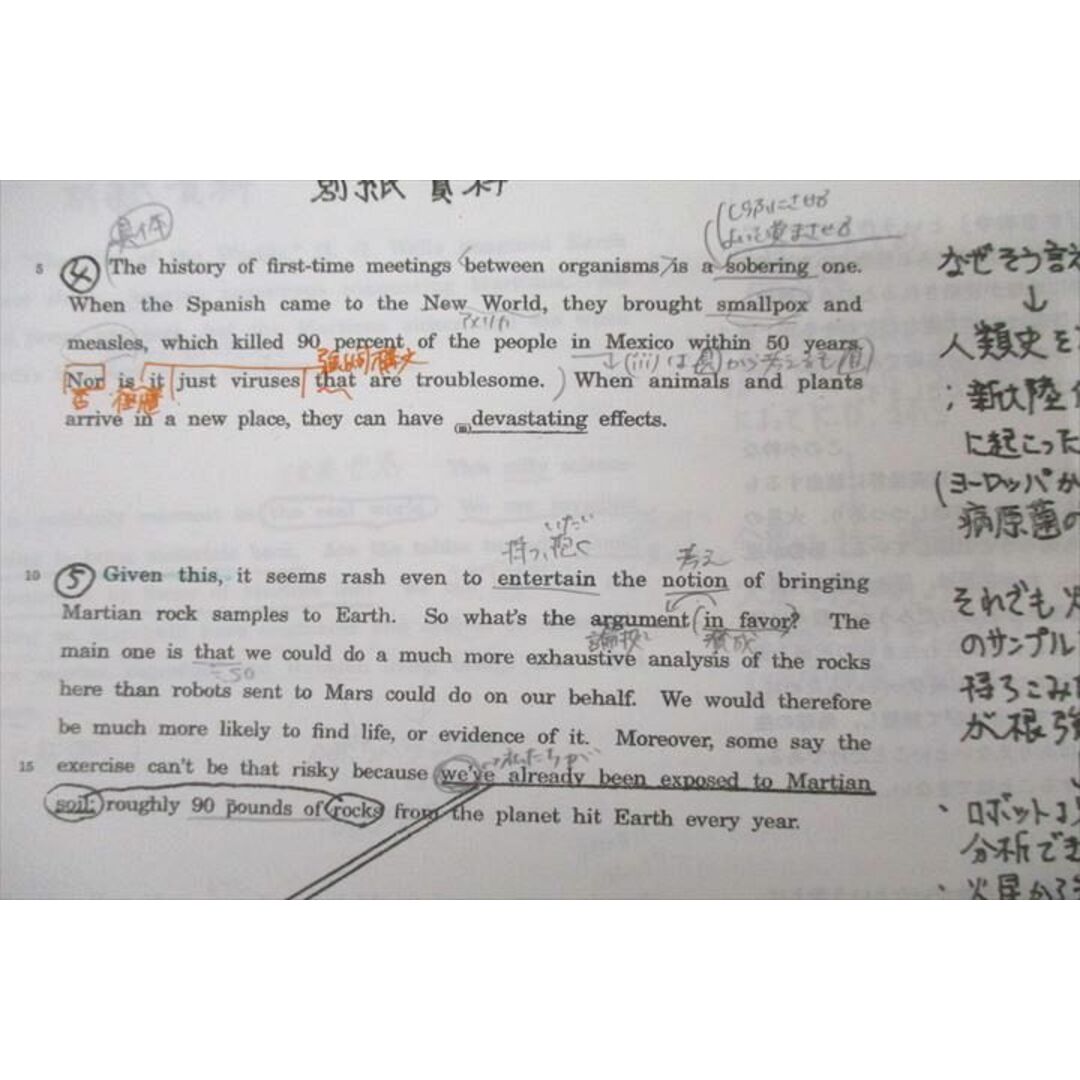 別紙資料
具体
しらふにさせる
よいを覚まさせる
5 ④ The history of first-time meetings between organisms is a sobering one.
When the Spanish came to the New World, they brought smallpox and
アメリカ
measles, which killed 90 percent of the people in Mexico within 50 years.
強調構文
Nor is it just viruses that are troublesome. When animals and plants
否 倒置
arrive in a new place, they can have (iii) devastating effects.
いだく
持つ、抱く
考え
10 ⑤ Given this, it seems rash even to entertain the notion of bringing
Martian rock samples to Earth. So what's the argument in favor? The
論拠 賛成
main one is that we could do a much more exhaustive analysis of the rocks
here than robots sent to Mars could do on our behalf. We would therefore
be much more likely to find life, or evidence of it. Moreover, some say the
わたしたちが
15 exercise can't be that risky because we've already been exposed to Martian
soil: roughly 90 pounds of rocks from the planet hit Earth every year.
なぜそう言え
↓
人類史を
; 新大陸
に起こった
(ヨーロッパか
病原菌の
それでも火
のサンプル
持ちこみ
が根強
・ロボットより
分析でき
・火星から